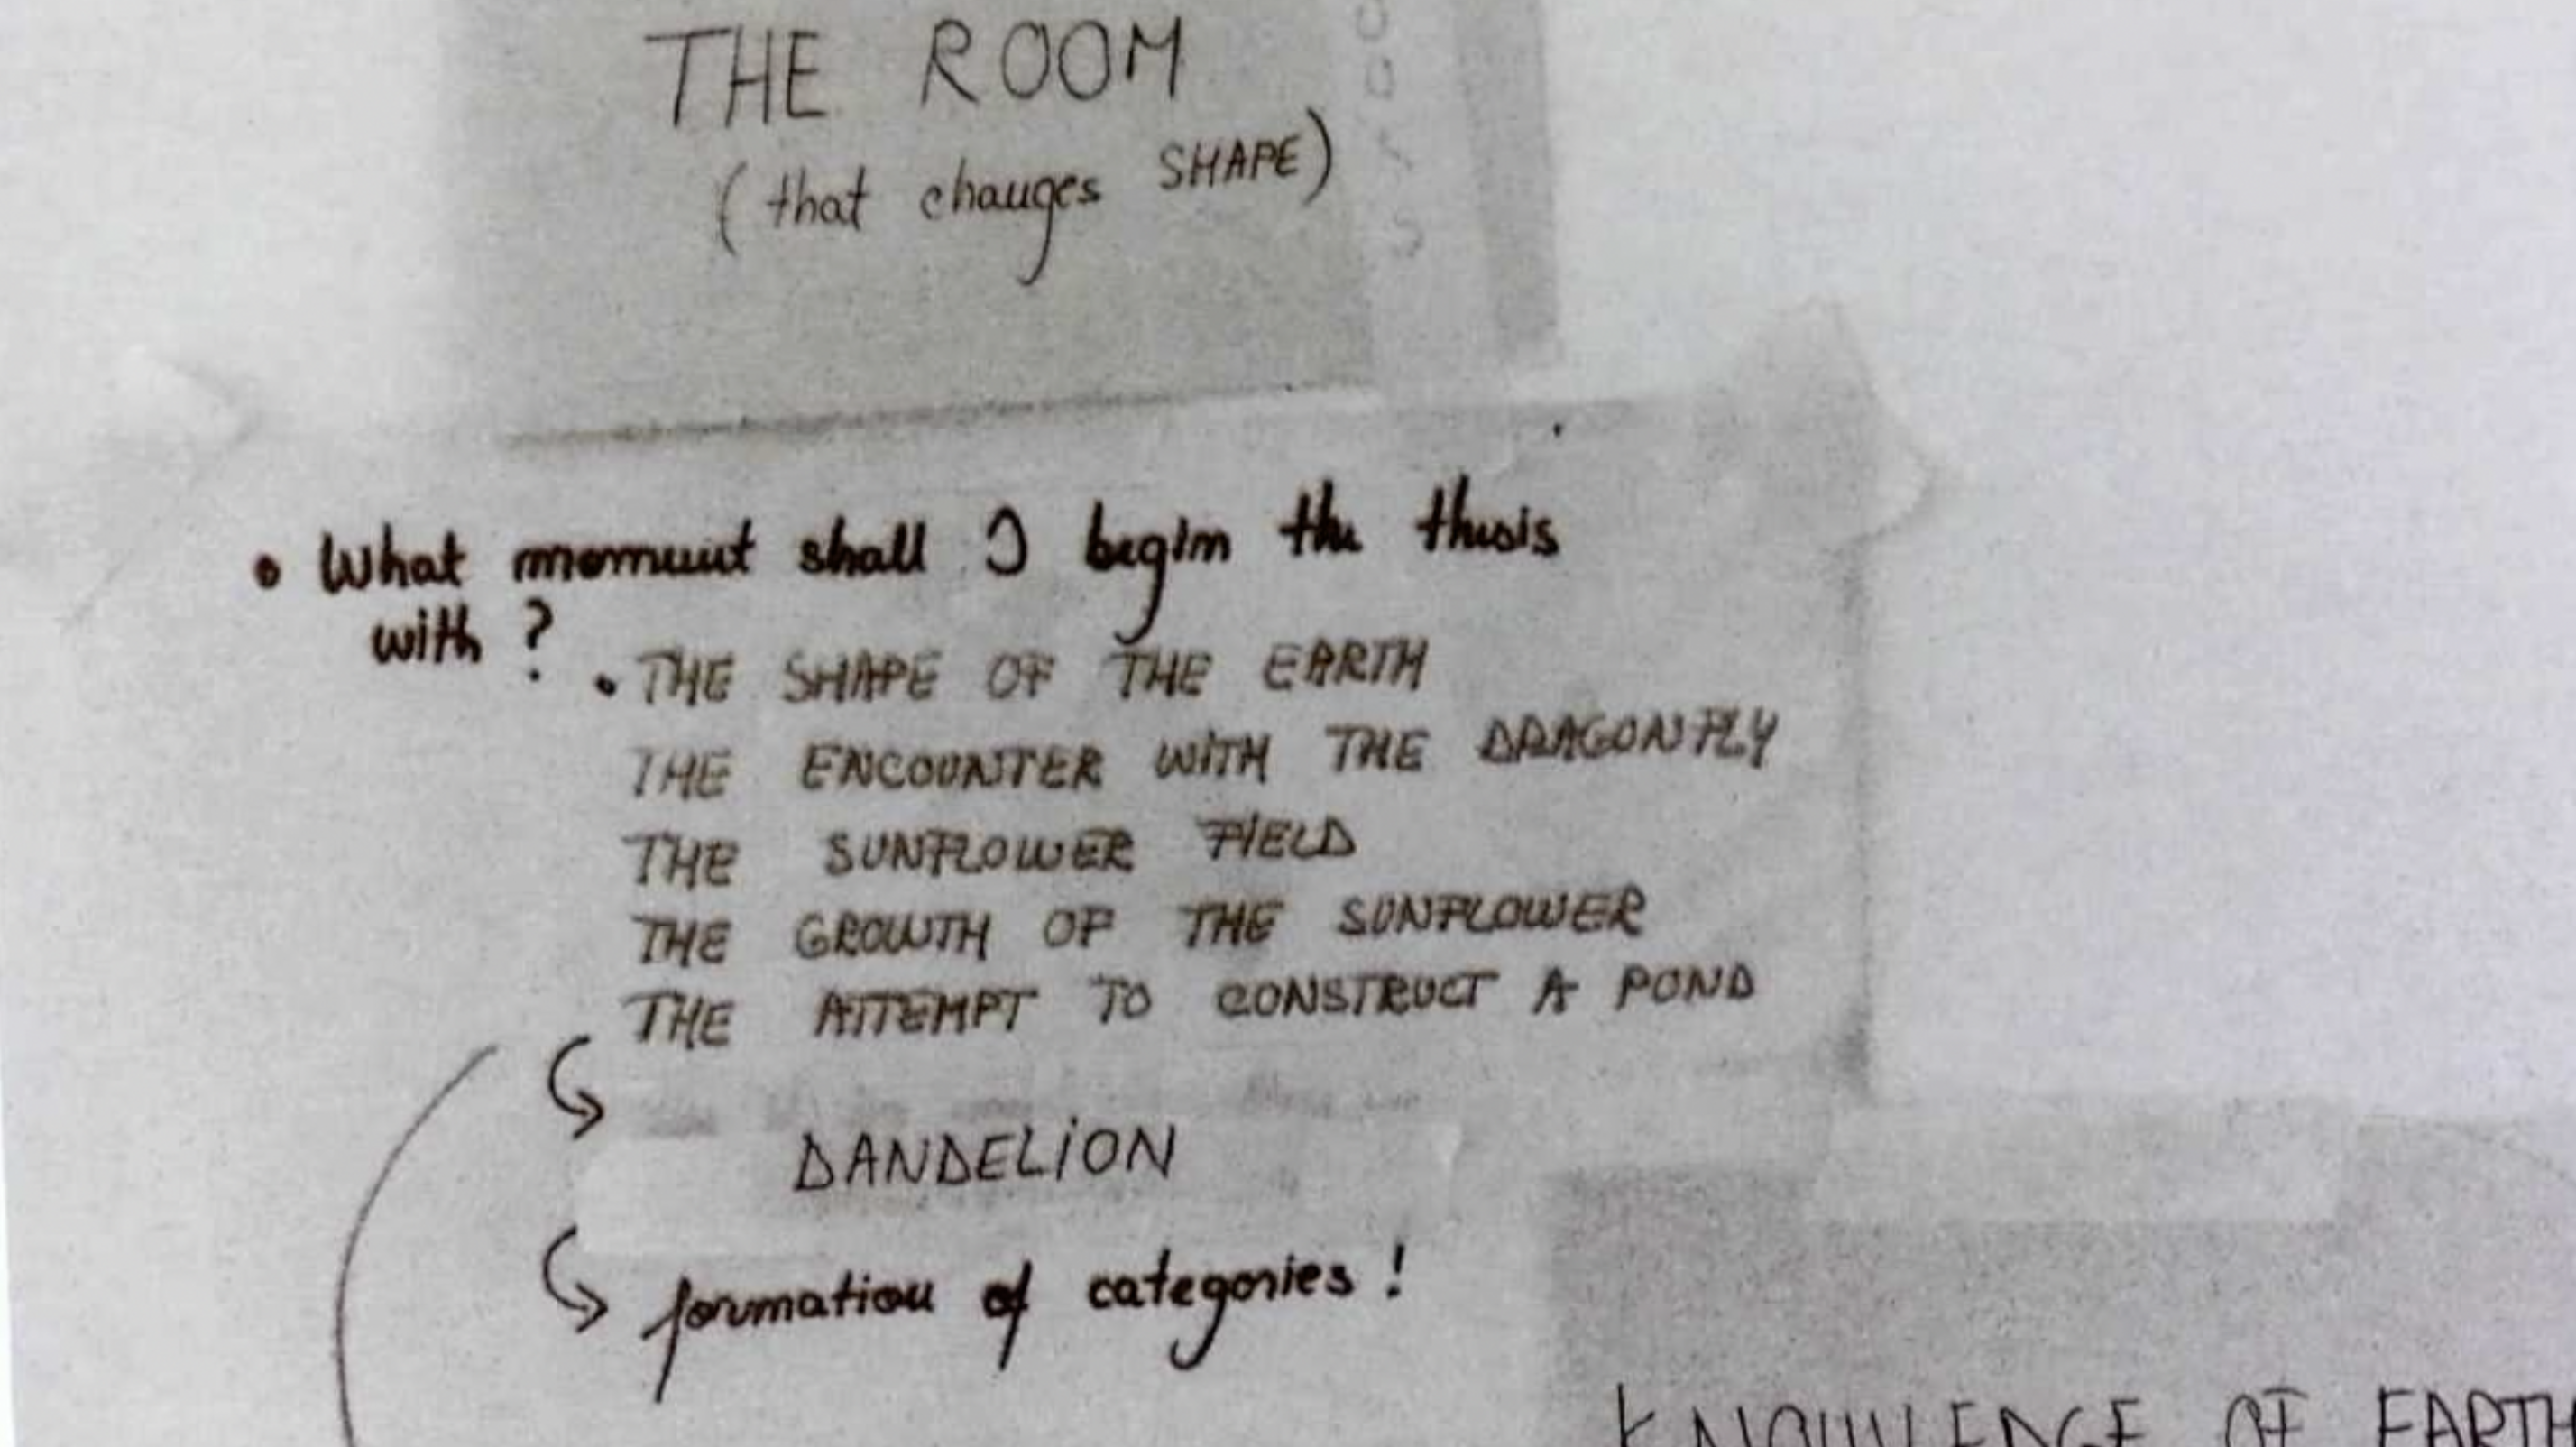 THE ROOM
(that changes SHAPE)
• What moment shall I begin the thesis
with?
• THE SHAPE OF THE EARTH
THE ENCOUNTER WITH THE DRAGONFLY
THE SUNFLOWER FIELD
THE GROWTH OF THE SUNFLOWER
THE ATTEMPT TO CONSTRUCT A POND
DANDELION
formation of categories!
KNOWLEDGE OF EARTH